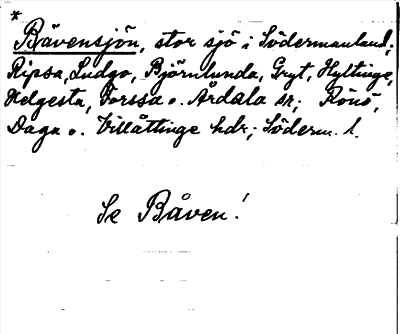 *
Båvensjön, stor sjö i Södermanland;
Ripsa, Ludgo, Björnlunda, Gryt, Hyltinge,
Helgesta, Forssa o. Årdala sn; Rönö,
Daga o. Villåttinge hdr; Söderm. l.
Se Båven!